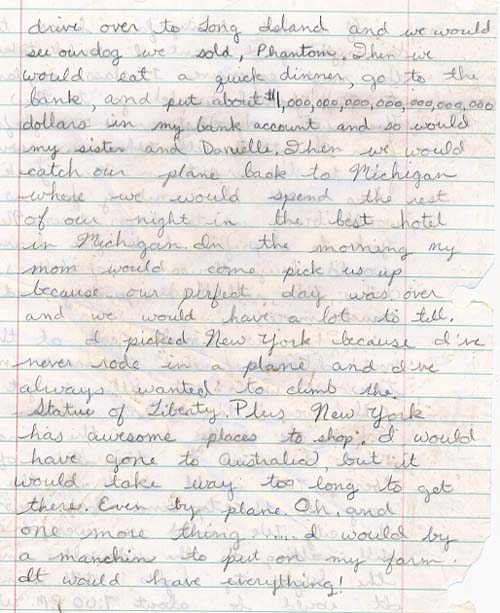 drive over to Long Island and we would
see our dog we sold, Phantom. Then we
would eat a quick dinner, go to the
bank, and put about $1,000,000,000,000,000,000,000
dollars in my bank account and so would
my sister and Danielle. Then we would
catch our plane back to Michigan
where we would spend the rest
of our night in the best hotel
in Michigan. In the morning my
mom would come pick us up
because our perfect day was over
and we would have a lot to tell.
I picked New York because I've
never rode in a plane, and I've
always wanted to climb the
Statue of Liberty. Plus New York
has awesome places to shop. I would
have gone to Australia, but it
would take way too long to get
there. Even by plane. Oh, and
one more thing ..... I would by
a manchin to put on my farm.
It would have everything!